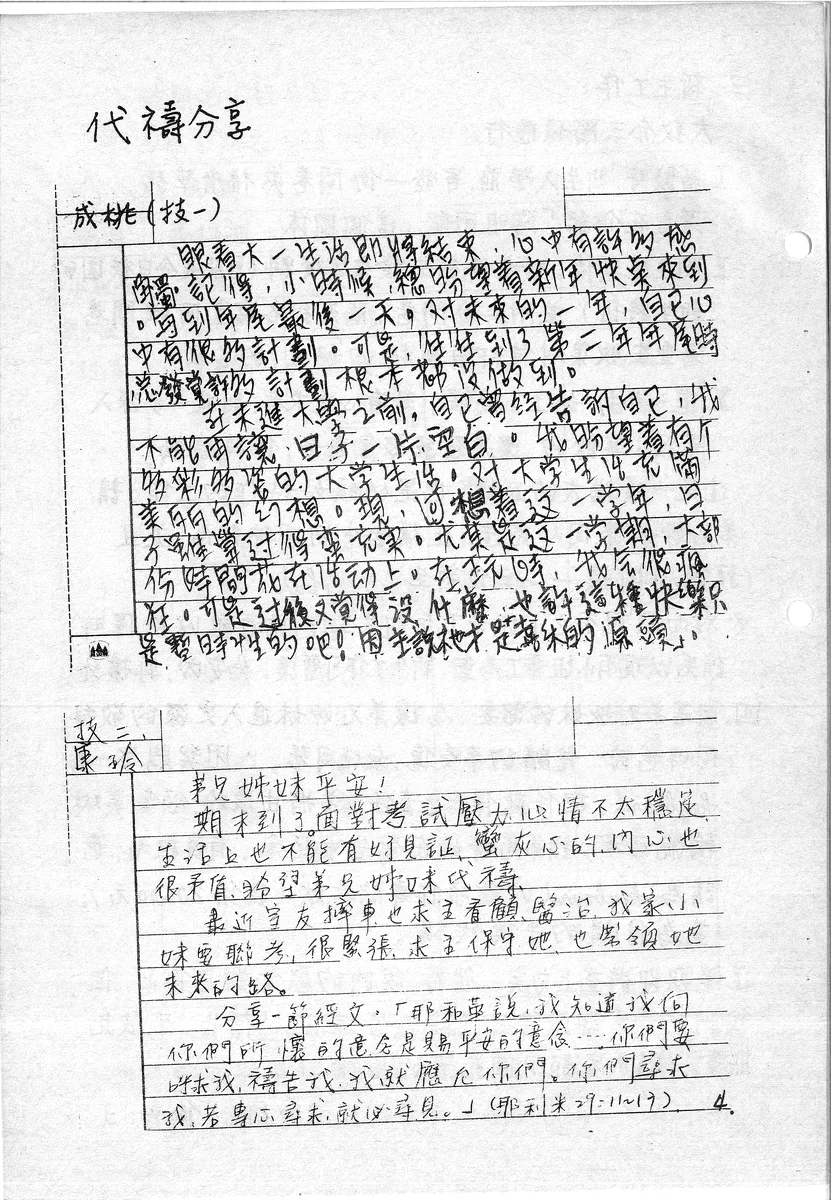 代禱分享
成桃(技一)
眼看大一生活即將結束，心中有許多感
觸。記得，小時候，總盼望着新年快點來到
。每到年尾最後一天。对未來的一年，自己心
中有很多計劃。可是，往往到了第二年年尾時
總發覺許多計劃根本都沒做到。
在未進大學之前。自己曾經告訴自己，我
不能再讓日子一片空白。我盼望着有个
多彩多姿的大学生活。对大学生活充滿
的幻想。現，回想着这一学年，日
子雖算过得蛮充实。尤其是这一学期，大部
份時間花在活动上。在玩時，我会很瘋
狂。可是过後又覺得没什麼，也許這種快樂只
是暫時性的吧！因主說祂才是喜樂的源頭」。
技二、
康玲
弟兄姊妹平安！
期末到了。面對考試壓力心情不太穩定、
生活上也不能有好見証、蠻灰心的，內心也
很矛盾、盼望弟兄姊妹代禱、
最近室友摔車也求主看顧、醫治、我家小
妹要聯考，很緊張、求主保守她、也帶領她
未來的路。
分享一節經文。「耶和華說，我知道我向
你們所懷的意念是賜平安的意念……你們要
呼求我，禱告我，我就應允你們。你們尋求
我，若專心尋求，就必尋見。」(耶利米29:11~13)
4.